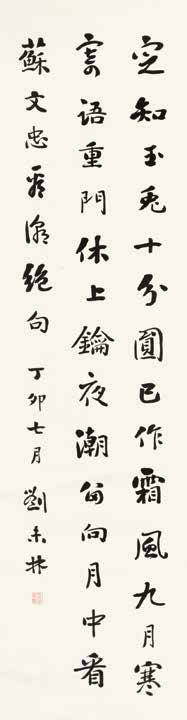 定知玉兔十分圓已作霜風九月寒
寄語重門休上鑰夜潮留向月中看
蘇文忠看潮絕句 丁卯七月 劉未林